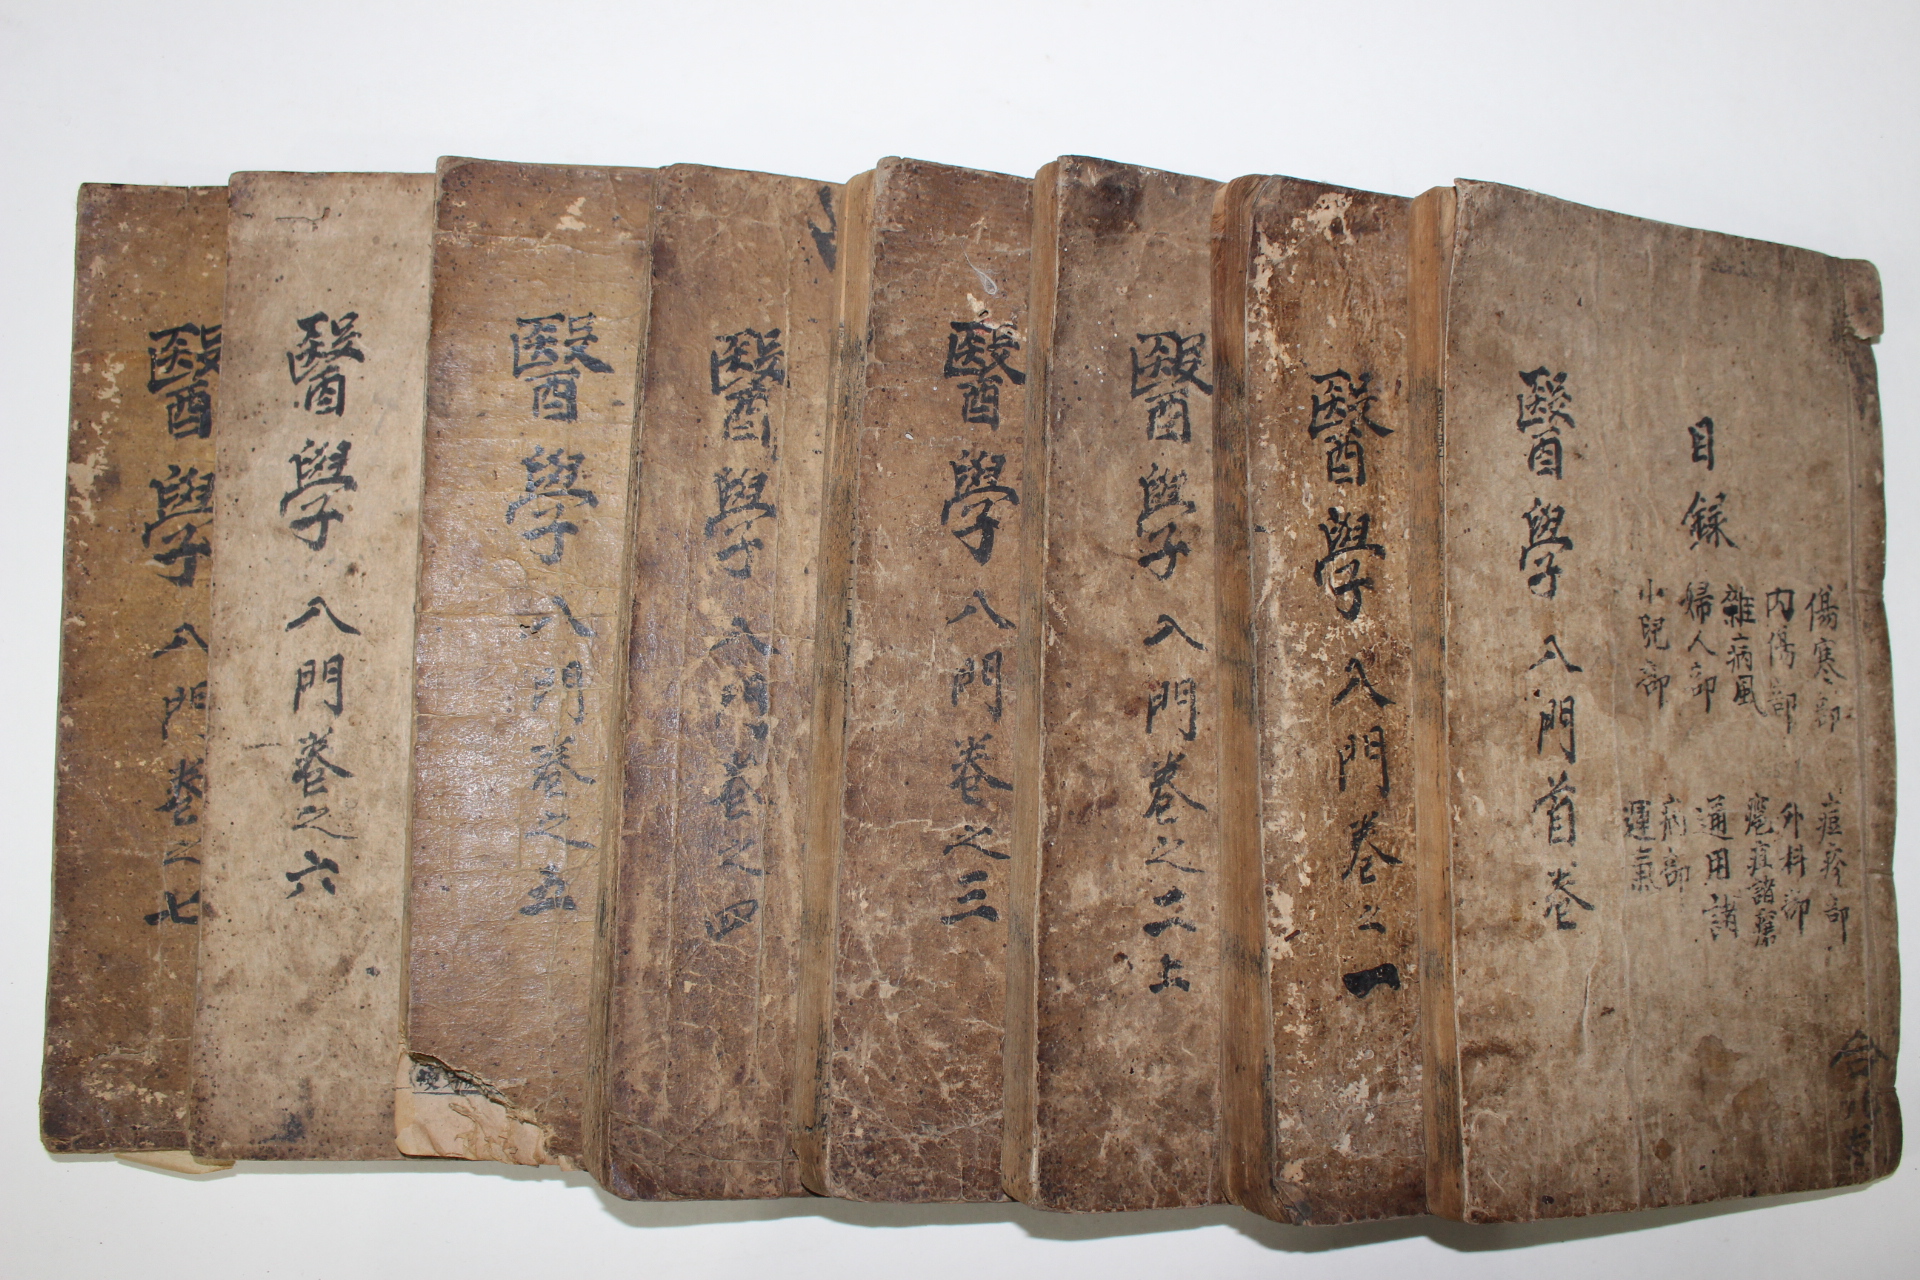 醫學入門首卷
目錄
傷寒部
內傷部
雜病風
婦人部
小兒部
痘疹部
外科部
癰疽諸瘡
通用諸
病部
運氣
醫學入門卷之一
醫學入門卷之二上
醫學入門卷之三
醫學入門卷之四
醫學入門卷之五
醫學入門卷之六
醫學入門卷之七